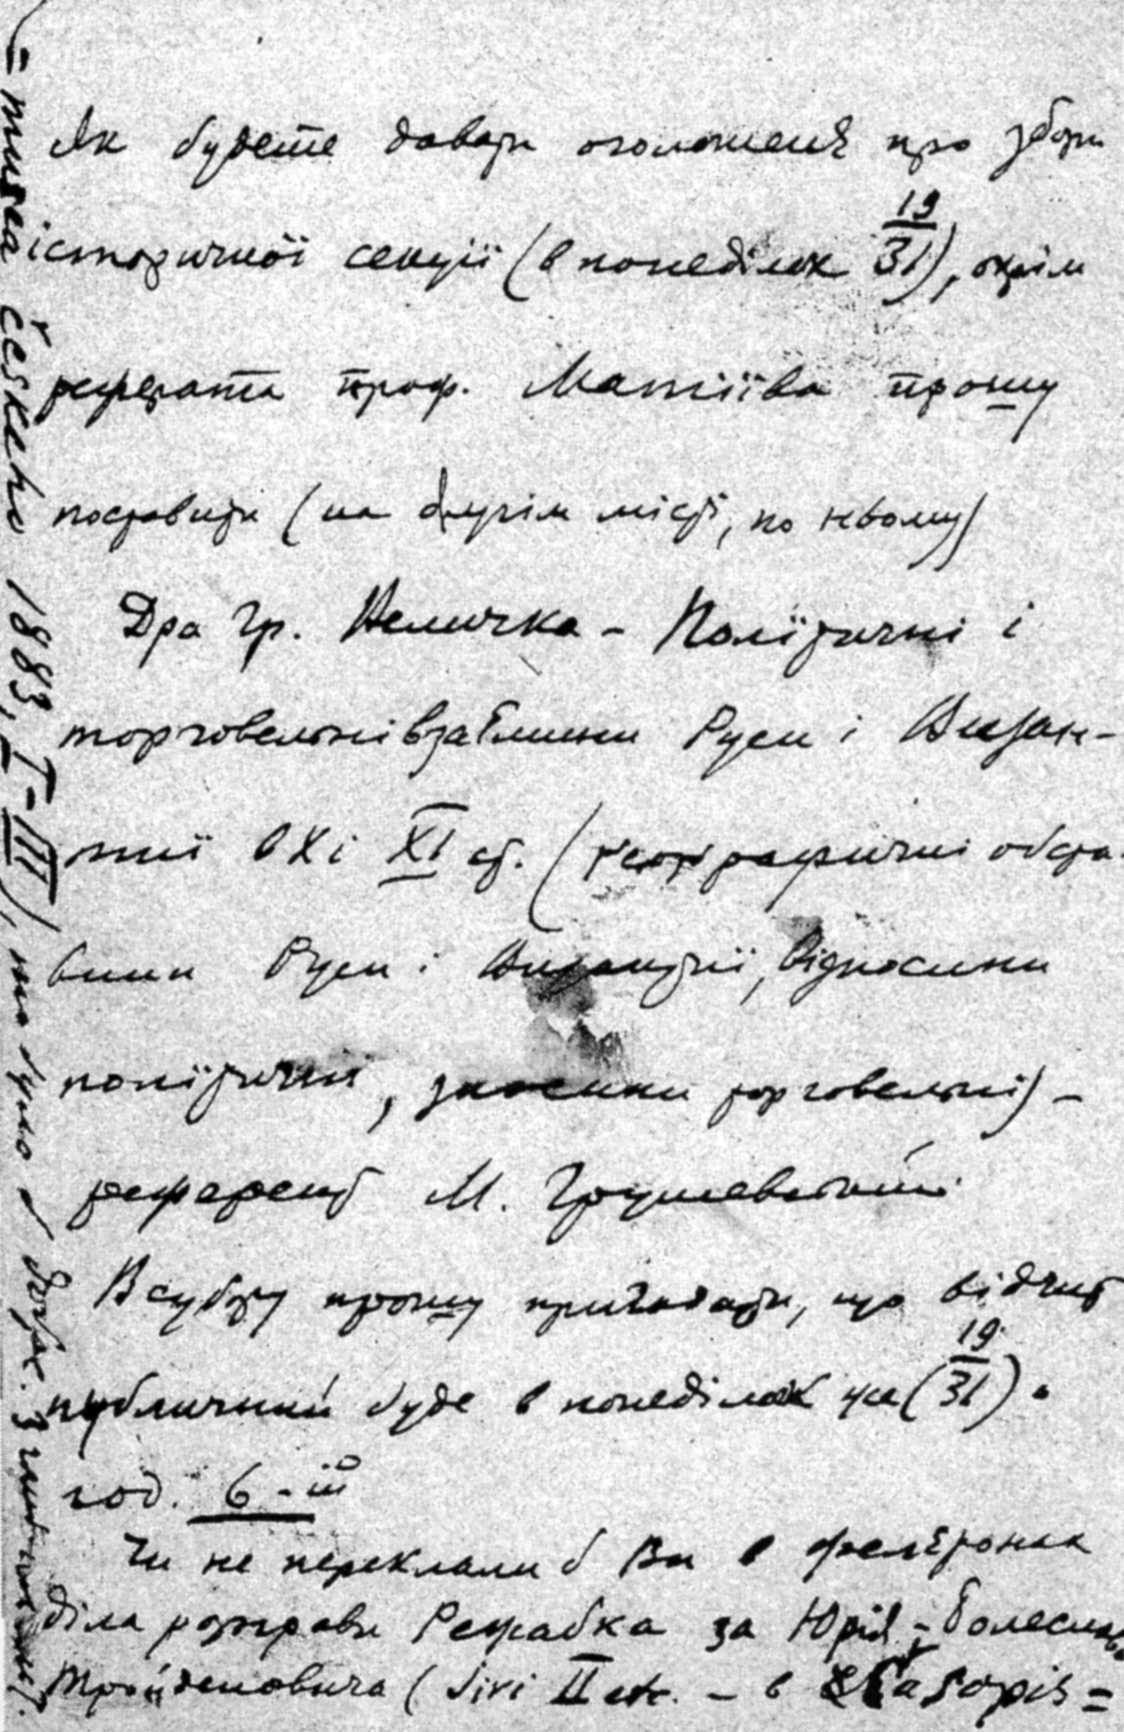 Як будете давати оголошенє про збори
історичної секциї (в понеділок 19/31), окрім
реферата проф. Матіїва прошу
поставити (на другім місці, по ньому)
Дра Гр. Величка – Полїтичні і
торговельні взаємини Руси і Визан-
тиї в X і XI ст. (ґеоґрафичні обста-
вини Руси і Византиї, відносини
полїтичні, зносини торговельні) –
референт М. Грушевський.
В суботу прошу пригадати, що відчит
публичний буде в понеділок уже (19/31) о
год. 6-ій
Чи не переклали б Ви в фелєтонах
Діла розправи Режабка за Юрія-Болеслава
Тройденовича (Jiri II etc. – в Časopis=
=musea českeho 1883, I-III), то було б